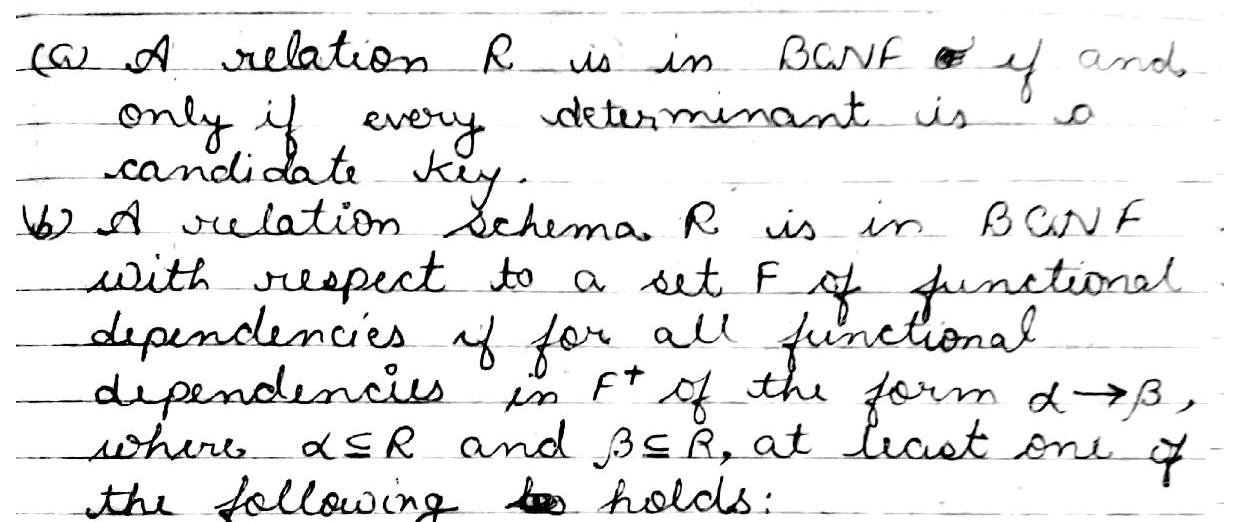 (a) A relation R is in BCNF if and
only if every determinant is a
candidate key.
(b) A relation schema R is in BCNF
with respect to a set F of functional
dependencies if for all functional
dependencies in F⁺ of the form α→β,
where α⊆R and β⊆R, at least one of
the following holds: